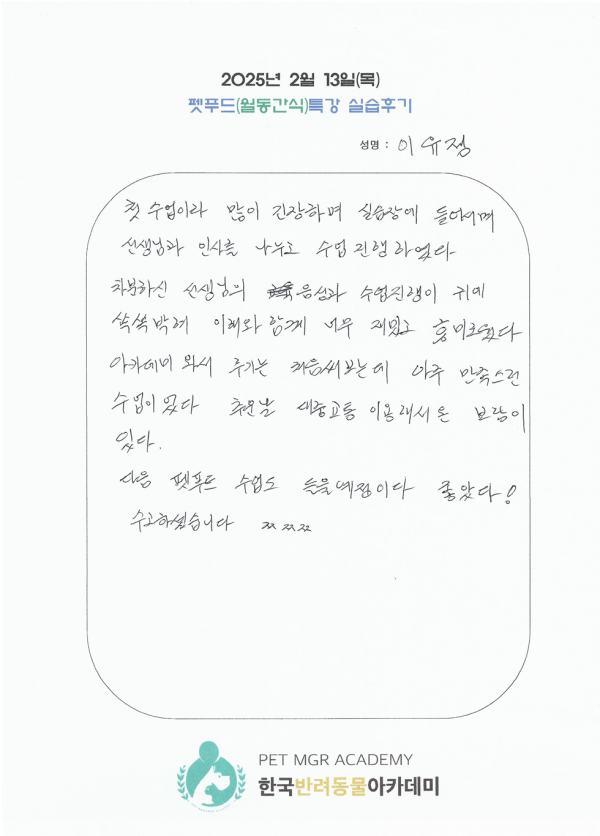 2025년 2월 13일(목)
펫푸드(월동간식)특강 실습후기
성명 : 이유정
첫 수업이라 많이 긴장하며 실습장에 들어서며
선생님과 인사를 나누고 수업 진행하였다
차분하신 선생님의 음성과 수업진행이 귀에
쏙쏙 박혀 이해와 함께 너무 재밌고 흥미로웠다
아카데미 와서 후기는 처음써보는데 아주 만족스런
수업이었다 추운날 대중교통 이용해서 온 보람이
있다.
다음 펫푸드 수업도 들을예정이다 좋았다!
수고하셨습니다 ㅉㅉㅉ
PET MGR ACADEMY
한국반려동물아카데미